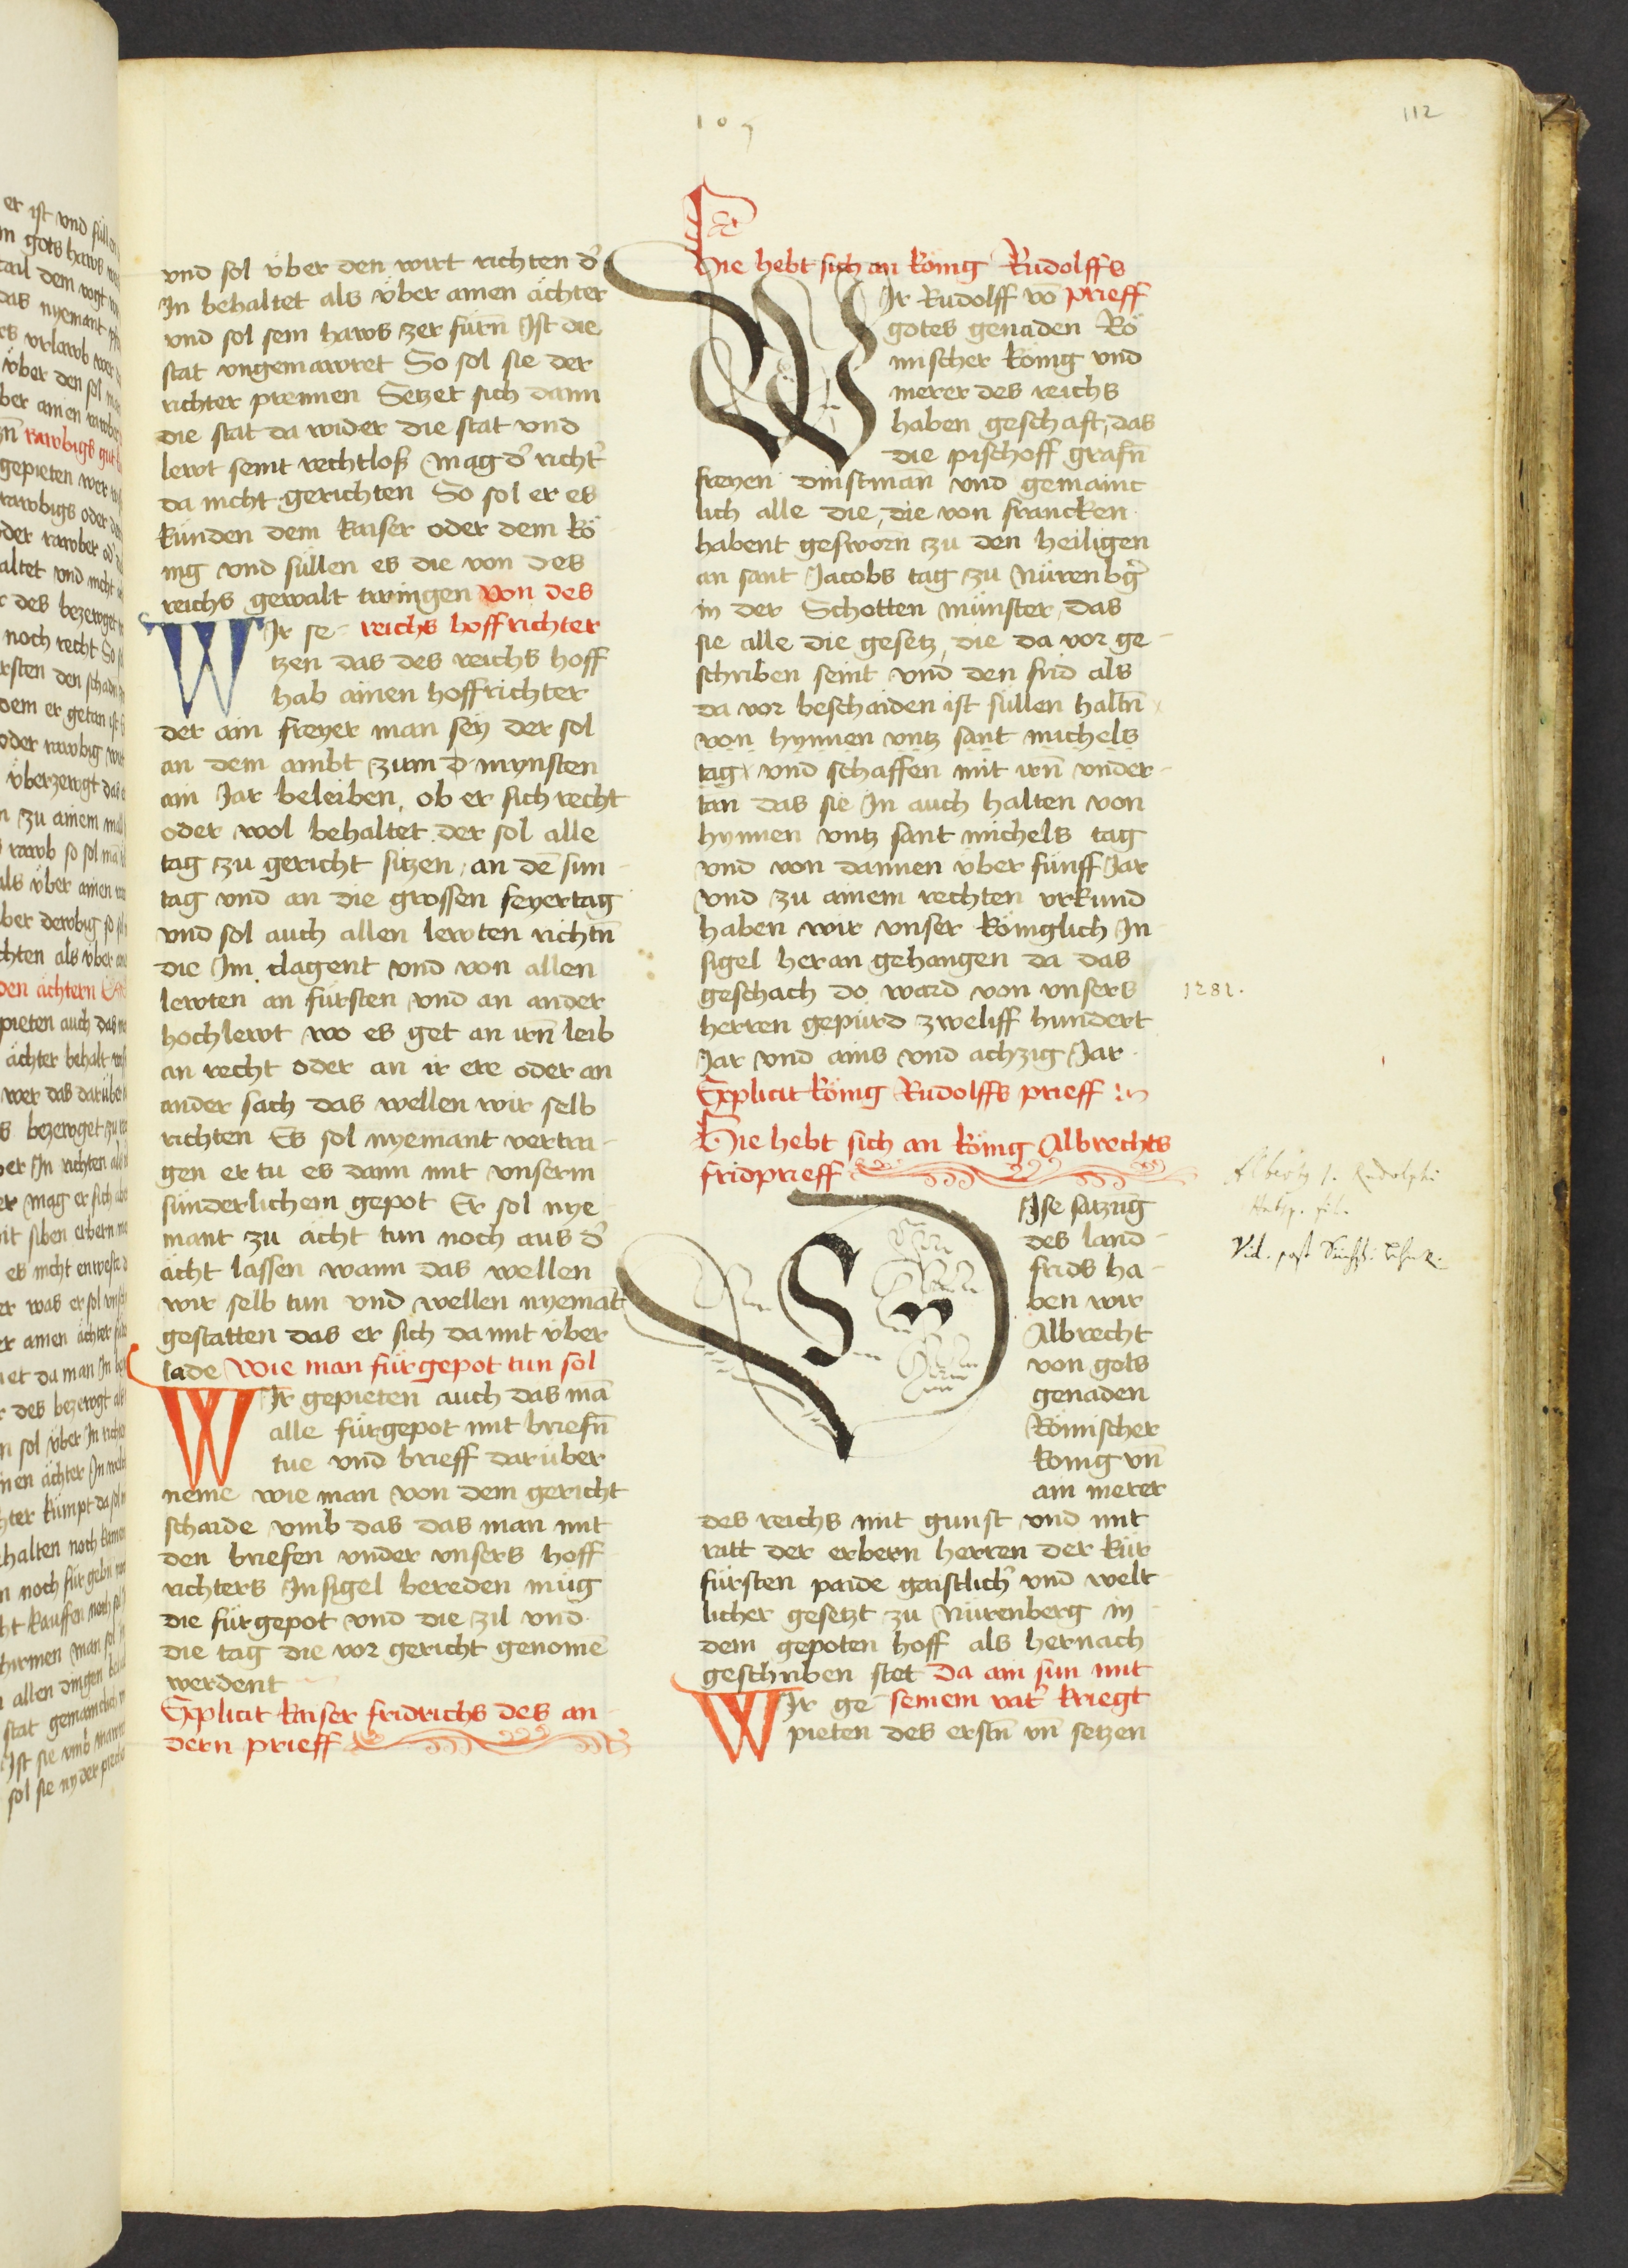 107
112
vnd sol vber den wirt richten d̉
In behaltet als vber ainen ächter
vnd sol sein haws zer fürn̄ Ist die
stat vngemawret So sol sie der
richter prennen Setzet sich dann
die stat da wider die stat vnd
lewt seint rechtloß Mag d̉ richt̉
da nicht gerichten So sol er es
künden dem kaiser oder dem kö
nig vnd süllen es die von des
reichs gewalt twingen Von des
WIr se- reichs hoffrichter
tzen das des reichs hoff
hab ainen hoffrichter
der ain freyer man sey der sol
an dem ambt zum d mynsten
ain Jar beleiben, ob er sich recht
oder wol behaltet der sol alle
tag zu gericht sitzen, an dē sun-
tag vnd an die grossen feyertag
vnd sol auch allen lewten richtn̄
die Im clagent vnd von allen
lewten an fürsten vnd an ander
hochlewt wo es get an irn̄ leib
an recht oder an ir ere oder an
ander sach das wellen wir selb
richten Es sol nyemant vertai-
gen er tu es dann mit vnserm
sünderlichem gepot Er sol nye-
mant zu acht tun noch aus d̉
ächt lassen wann das wellen
wir selb tun vnd wellen nyemāt
gestatten das er sich damit vber
lade Wie man fürgepot tun sol
WIr gepieten auch das mā
alle fürgepot mit briefn̄
tue vnd brieff darüber
neme wie man von dem gericht
schaide vmb das das man mit
den briefen vnder vnsers hoff
richters Insigel bereden müg
die fürgepot vnd die zil vnd
die tag die vor gericht genomē
werdent
Explicit kaiser fridrichs des an
dern prieff
Hie hebt sich an könig Rudolffs
WIr Rudolff vō prieff
gotes genaden Rö
mischer könig vnd
merer des reichs
haben geschaft, das
die pischoff grafn̄
freyen dinstmann vnd gemainc
lich alle die, die von francken
habent gesworn zu den heiligen
an sant Jacobs tag zu Nürenbg̉
in der Schotten münster, das
sie alle die gesetz, die da vor ge-
schriben seint vnd den frid als
da vor beschaiden ist süllen haltn̄
von hynnen vntz sant michels
tag, vnd schaffen mit irn̄ vnder-
tan das sie In auch halten von
hynnen vntz sant michels tag
vnd von dannen vber fünff Jar
vnd zu ainem rechten vrkund
haben wir vnser königlich In-
sigel heran gehangen da das
geschach do ward von vnsers
herren gepürd zweliff hundert
Jar vnd ains vnd achzig Jar.
1281.
Explicit könig Rudolffs prieff
Hie hebt sich an könig Albrechts
fridprieff
Rudolphi
Vid. post
DIse satzūg
des land-
frids ha-
ben wir
Albrecht
von gots
genaden
Römischer
könig vn̄
ain merer
des reichs mit gunst vnd mit
ratt der erbern herren der kür
fürsten paide gaistlich̉ vnd welt-
licher gesetzt zu Nürenberg in
dem gepoten hoff als hernach
geschriben stet Da ain sun mit
WIr ge- seinem vat̉ kriegt
pieten des erstn̄ vn̄ setzen